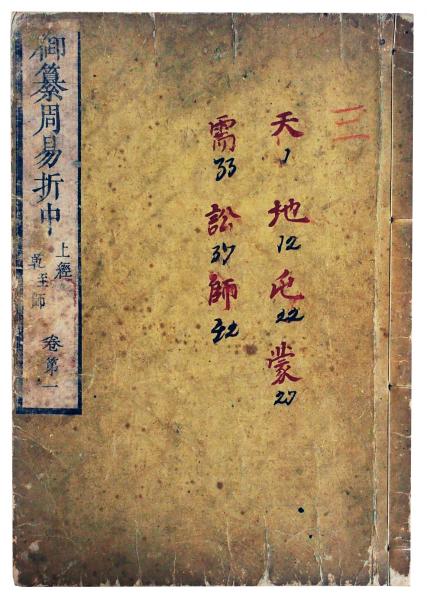 三
天 1 地 12 屯 22 蒙 27
需 33 訟 37 師 42
御纂周易折中
上經
乾至師
卷第一